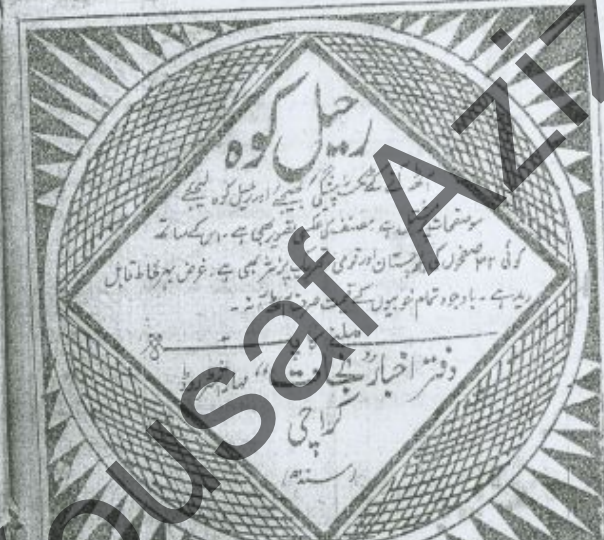 رحیل کوہ
آنے کے ٹکٹ پیشگی بھیجیے اور رحیل کوہ لیجیے
سو صفحات ہے مصنف کی عکسی تصویر بھی ہے۔ اس کے ساتھ
کوئی ۳۲ صفحوں کا بلوچستان اور قومی لٹریچر بھی ہے، غرض ہر لحاظ قابل
دید ہے۔ باوجود تمام خوبیوں کے قیمت صرف آنہ۔
ملنے کا پتہ
دفتر اخبار "نجات"
کراچی
(سندھ)
Yousaf Aziz